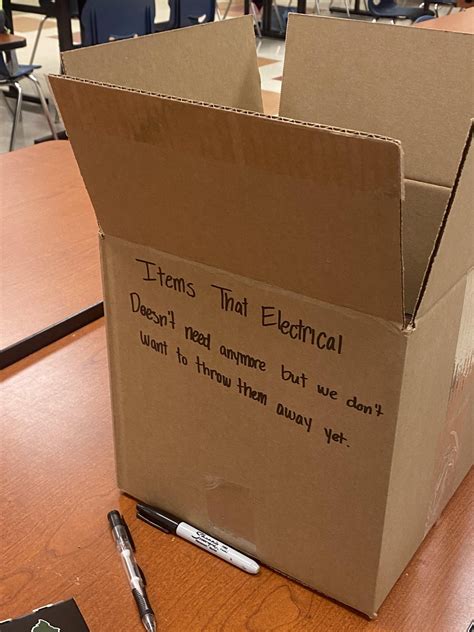 Items That Electrical
Doesn't need anymore but we don't
want to throw them away yet.
Sharpie